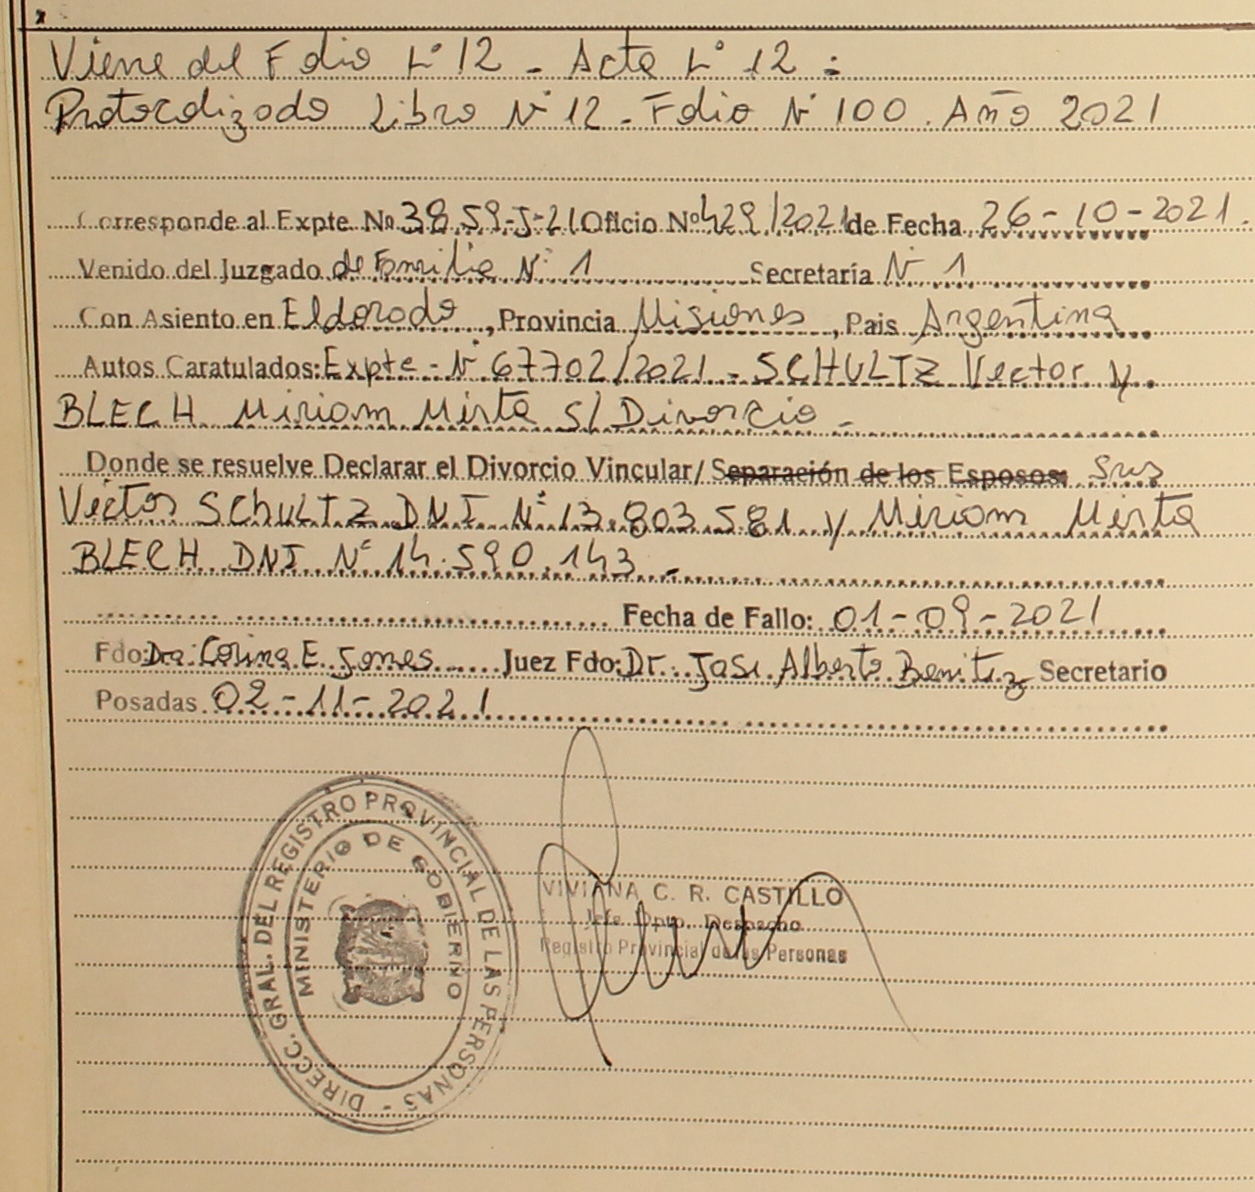 Viene del Folio N° 12 - Acta N° 12 :
Protocolizado Libro N° 12 - Folio N° 100 . Año 2021
Corresponde al Expte. No 3859-J-21 Oficio No 429/2021 de Fecha 26-10-2021.
Venido del Juzgado de Familia N° 1 Secretaría N° 1
Con Asiento en Eldorado, Provincia Misiones, Pais Argentina
Autos Caratulados: Expte - N° 67702/2021 - SCHULTZ Vector y
BLECH Miriam Mirta S/ Divorcio -
Donde se resuelve Declarar el Divorcio Vincular/ Separación de los Esposos: Sres
Vector SCHULTZ DNI N° 13.803.581 y Miriam Mirta
BLECH DNI N° 14.590.143 -
Fecha de Fallo: 01-09-2021
Fdo: Dra: Corina E. Jones Juez Fdo: Dr. José Alberto Benitez Secretario
Posadas 02-11-2021
DIRECC. GRAL. DEL REGISTRO PROVINCIAL DE LAS PERSONAS -
MINISTERIO DE GOBIERNO
VIVIANA C. R. CASTILLO
Jefe Dpto. Despacho
Registro Provincial de las Personas